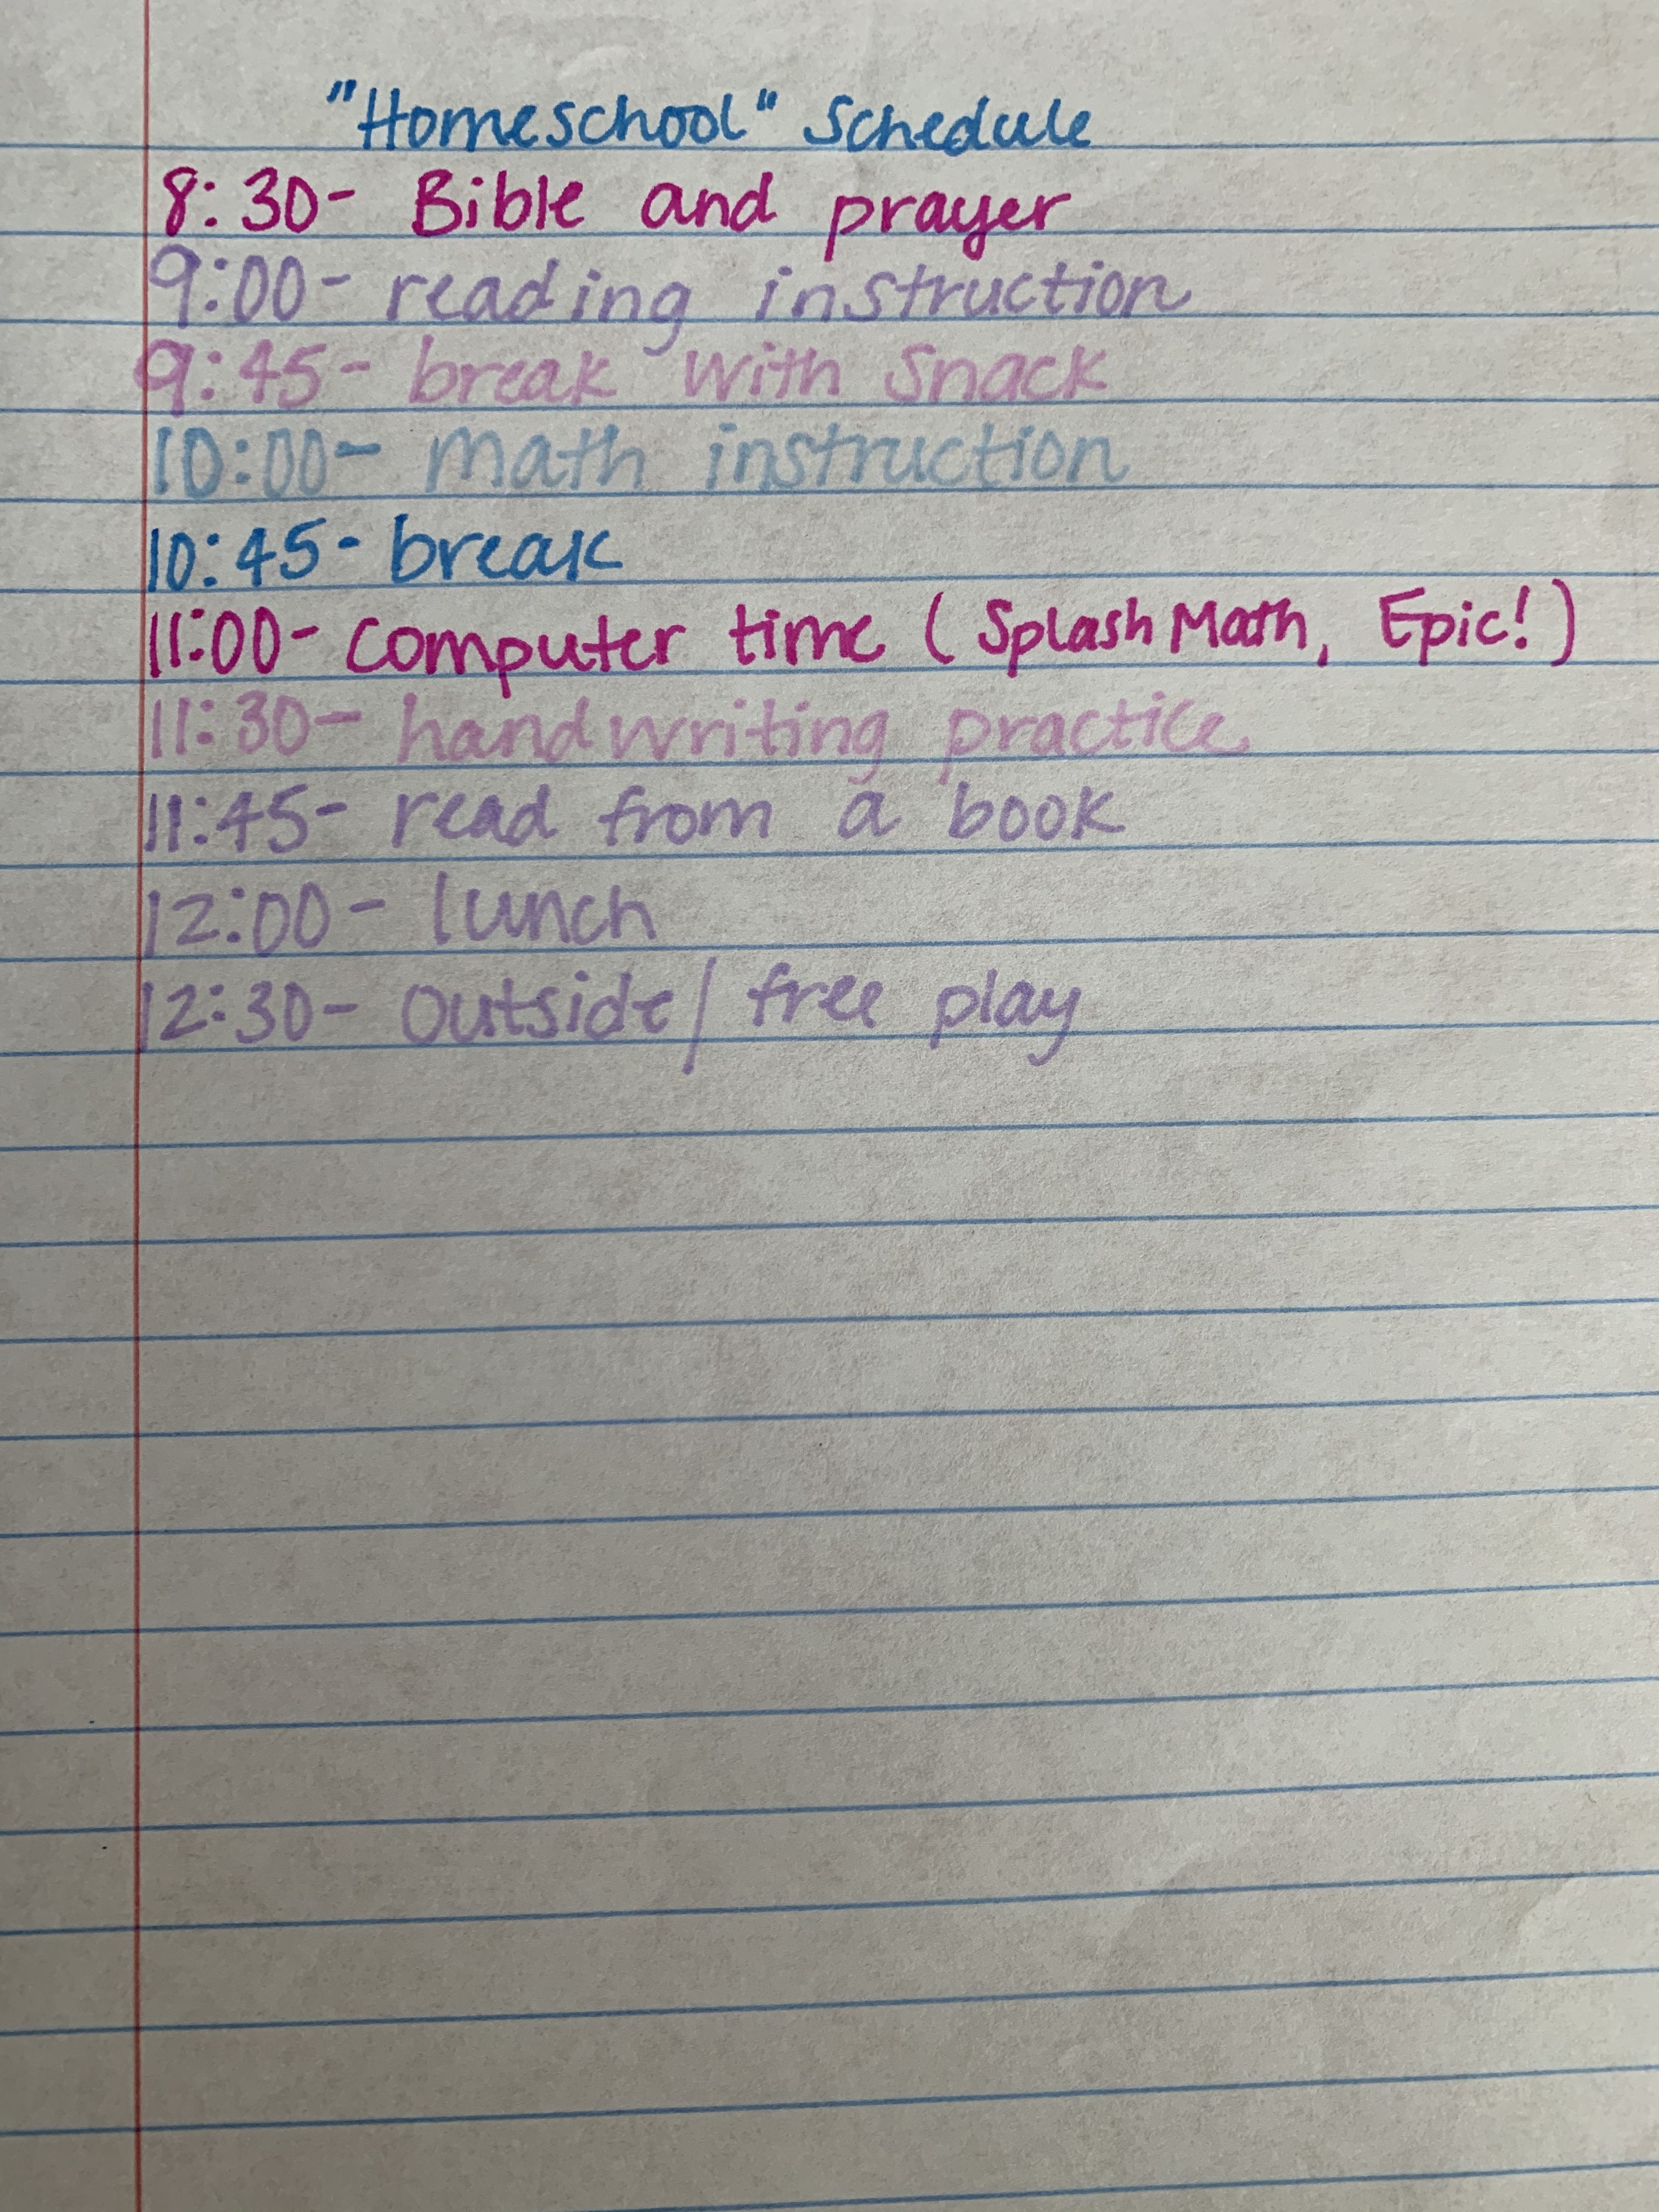 "Homeschool" Schedule
8:30- Bible and prayer
9:00- reading instruction
9:45- break with snack
10:00- math instruction
10:45- break
11:00- computer time (Splash Math, Epic!)
11:30- handwriting practice
11:45- read from a book
12:00- lunch
12:30- outside/ free play